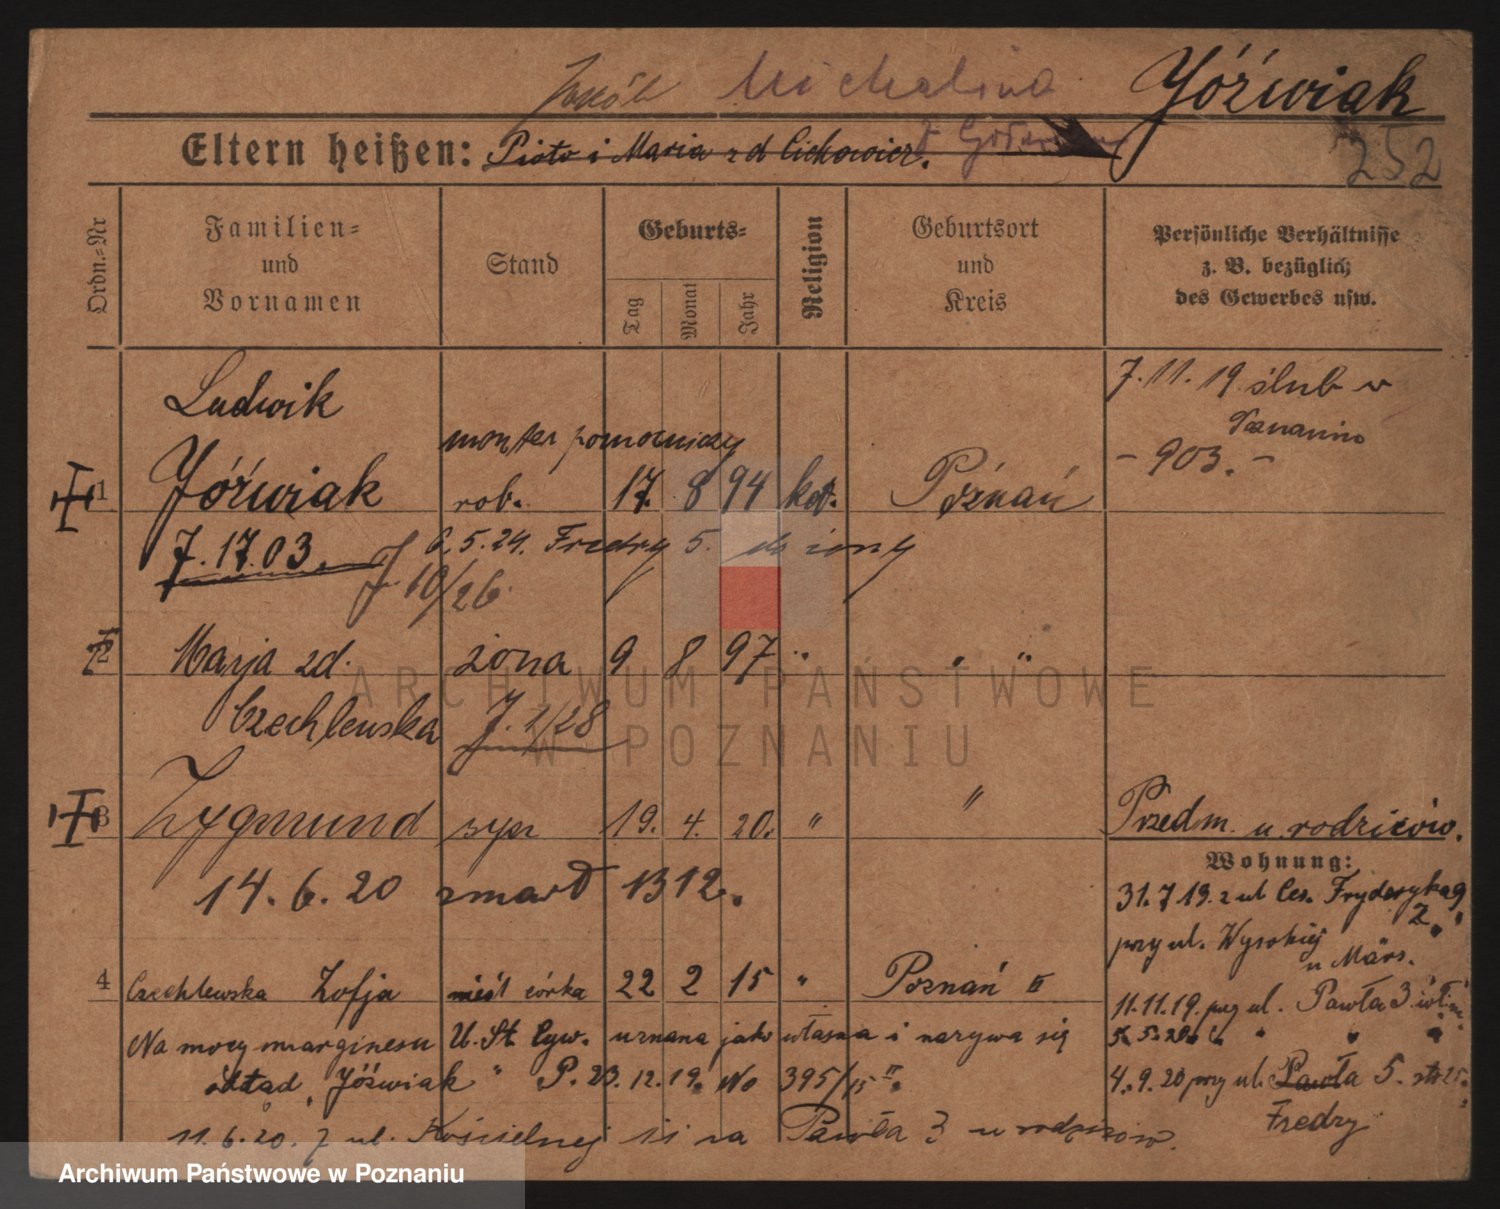 Jakób Michalina Jóźwiak
Eltern heißen: Piotr i Maria zd Cichowicz.
252
Ordn.-Nr
Familien- und Vornamen
Stand
Geburts-
Tag Monat Jahr
Religion
Geburtsort und Kreis
Persönliche Verhältnisse
z. B. bezüglich
des Gewerbes usw.
7. 11. 19 ślub w
Poznaniu
- 903. -
Ludwik
monter pomocniczy
1 Jóźwiak rob. 17. 8 94 kat. Poznań
7. 17. 03. 6. 5. 24. Fredry 5. do żony
J 10/26.
2 Marja zd. żona 9 8 97 " " "
Czechlewska J. 1/28
3 Zygmund syn 19. 4. 20. " " Przedm. u rodziców.
14. 6. 20 zmarł 1312.
Wohnung:
31. 7 19. z ul Ces. Fryderyka 9
przy ul. Wysokiej 2
u Märs.
4 Czechlewska Zofja nieśl córka 22 2 15 " Poznań II
11. 11. 19. przy ul. Pawła 3
Na mocy marginesu U. St Cyw. uznana jako własna i nazywa się
5. 5. 20 " " "
odtąd „Jóźwiak" P. 23. 12. 19. No 395/15 II.
4. 9. 20 przy ul. Pawła 5.
Fredry
11. 6. 20. z ul. Kościelnej na Pawła 3 u rodziców.
ARCHIWUM PAŃSTWOWE
W POZNANIU
Archiwum Państwowe w Poznaniu